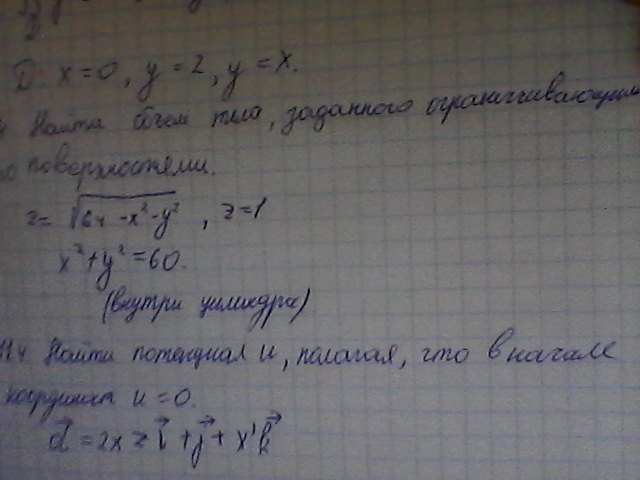 D: x=0, y=2, y=x.
Найти объем тела, заданного ограничивающими
поверхностями.
z=√64-x²-y², z=1
x²+y²=60.
(внутри цилиндра)
Найти потенциал u, полагая, что в начале
координат u=0.